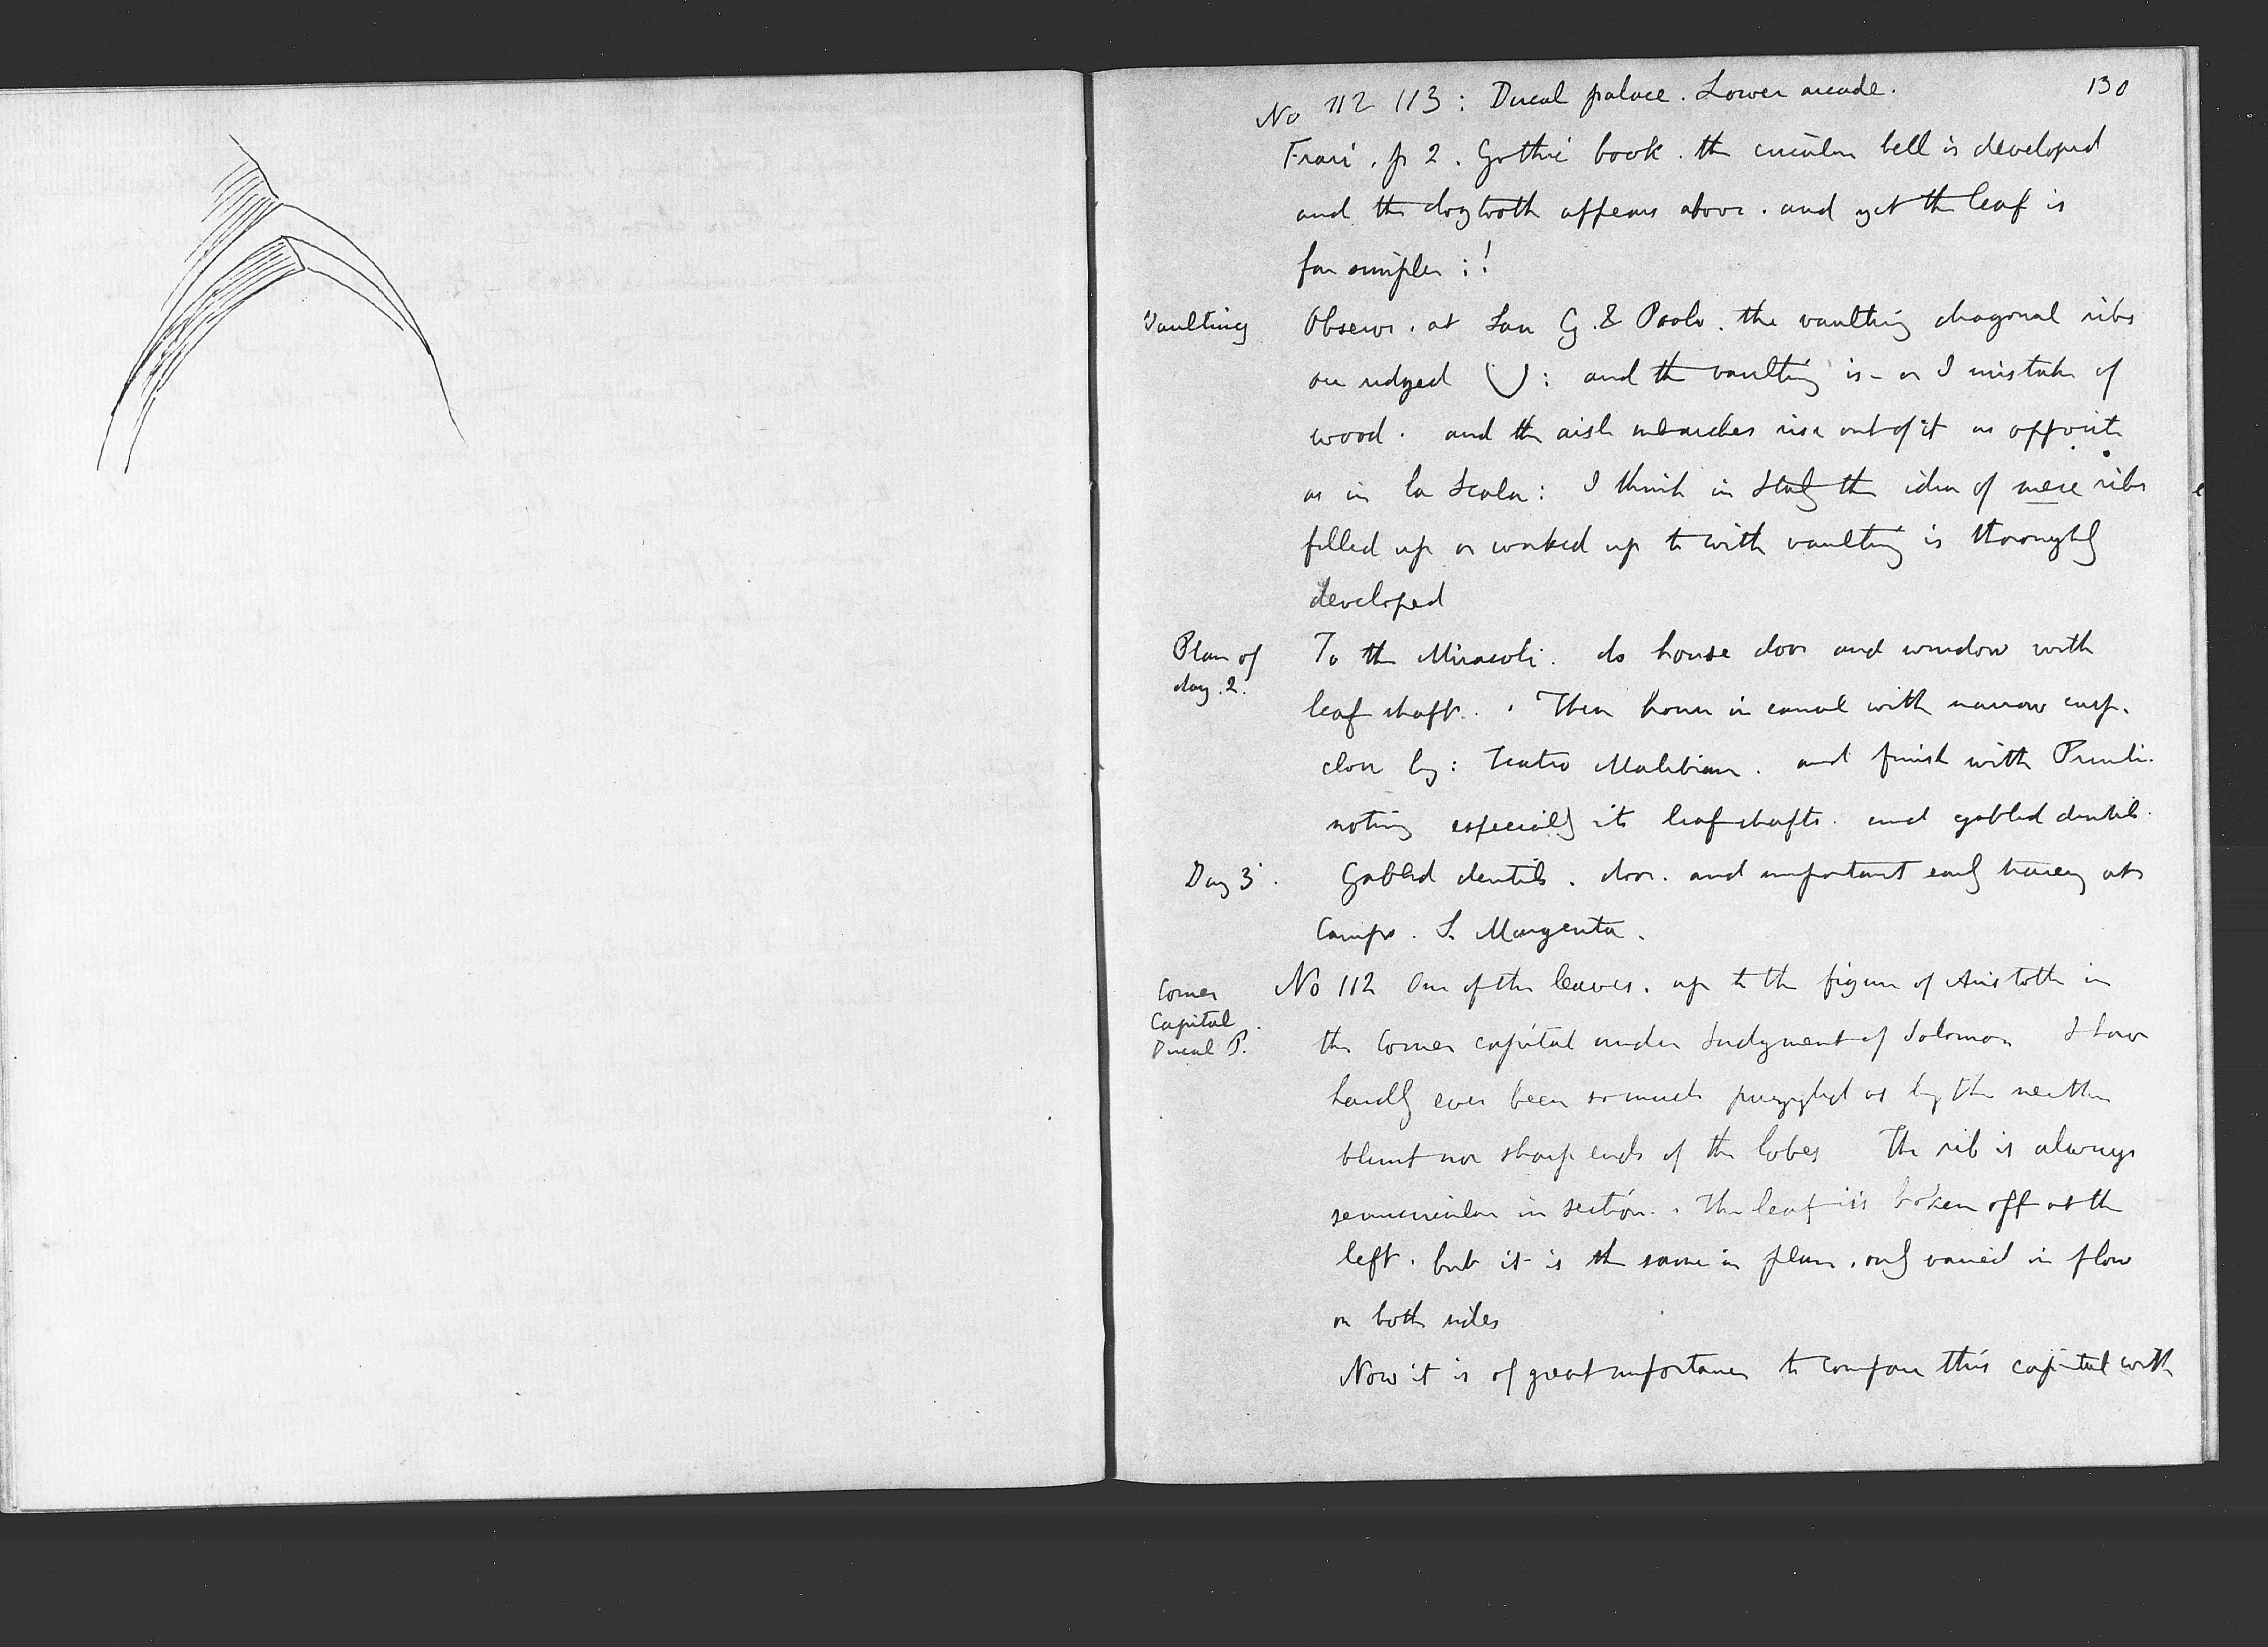 130
No 112 113 : Ducal palace. Lower arcade.
Frari. p 2. Gothic book. the circular bell is developed
and the dogtooth appears above. and yet the leaf is
far simpler : !
Vaulting
Observe. at San G. & Paolo. the vaulting diagonal ribs
are ridged : and the vaulting is - or I mistake of
wood. and the aisle arches rise out of it as opposite
as in la Scala : I think in Italy the idea of mere ribs
filled up or worked up to with vaulting is thoroughly
developed
Plan of
day. 2.
To the Miracoli. do house door and window with
leaf shaft. . Then house in canal with narrow cusp.
close by : Teatro Malibran. and finish with
noting especially its leaf shafts. and gabled dentils.
Day 3.
Gabled dentils. door. and important early tracery at
Campo. S. Margerita.
Corner
Capital
Ducal P.
No 112 One of the leaves. up to the figure of Aristotle in
the Corner capital under Judgment of Solomon I have
hardly ever been so much puzzled as by the neither
blunt nor sharp ends of the lobes The rib is always
semicircular in section. . The leaf is broken off at the
left. but it is the same in plan. only varied in flow
on both sides
Now it is of great importance to compare this capital with